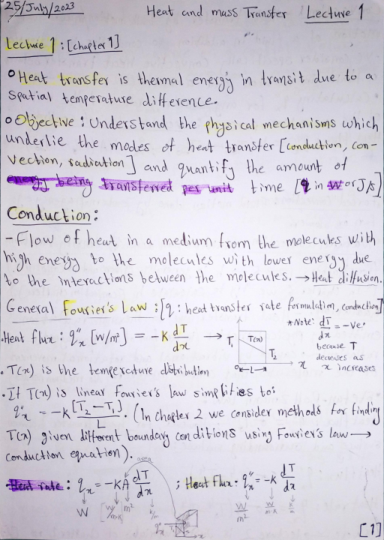 25/July/2023 Heat and mass Transfer Lecture 1
Lecture 1: [chapter 1]
Heat transfer is thermal energy in transit due to a
spatial temperature difference.
Objective: Understand the physical mechanisms which
underlie the modes of heat transfer [conduction, con-
vection, radiation] and quantify the amount of
energy being transferred per unit time [q in W or J/s]
Conduction:
- Flow of heat in a medium from the molecules with
high energy to the molecules with lower energy due
to the interactions between the molecules. → Heat diffusion.
General Fourier's Law: [q: heat transfer rate formulation, conduction]
Heat flux: q"x [W/m²] = -K dT/dx → T1 T(x) T2 L x
*Note: dT/dx = -ve
because T
decreases as
x increases.
• T(x) is the temperature distribution
• If T(x) is linear Fourier's law simplifies to:
q"x = -K [T2 - T1]/L. (In chapter 2 we consider methods for finding
T(x) given different boundary conditions using Fourier's law →
conduction equation).
Heat rate: qx = -KA dT/dx ; Heat flux: q"x = -K dT/dx
W
[1]